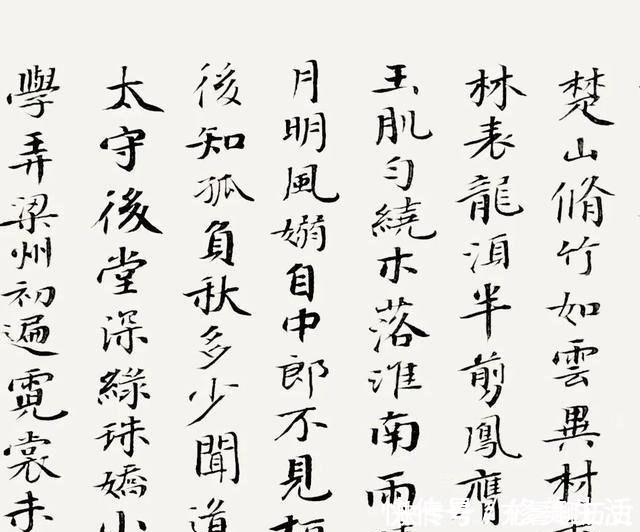 楚山脩竹如雲異材
林表龍湏半剪鳳膺
玉肌匀繞木落淮南雨
月明風嫋自中郎不見
後知孤負秋多少聞道
太守後堂深綠珠嬌小
學弄梁州初遍霓裳未
快传号